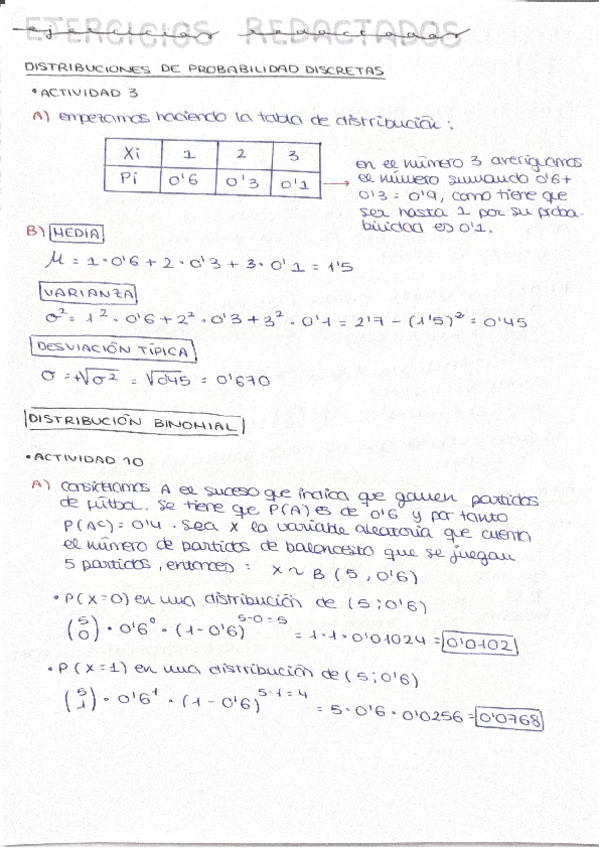 EJERCICIOS REDACTADOS
ejercicios redactados
DISTRIBUCIONES DE PROBABILIDAD DISCRETAS
• ACTIVIDAD 3
A) empezamos haciendo la tabla de distribución :
Xi 1 2 3
Pi 0'6 0'3 0'1
en el número 3 averiguamos
el número sumando 0'6+
0'3 = 0'9, como tiene que
ser hasta 1 por su proba-
bilidad es 0'1.
B) MEDIA
μ = 1 · 0'6 + 2 · 0'3 + 3 · 0'1 = 1'5
VARIANZA
σ² = 1² · 0'6 + 2² · 0'3 + 3² · 0'1 = 2'7 − (1'5)² = 0'45
DESVIACIÓN TÍPICA
σ = +√σ² = √045 = 0'670
DISTRIBUCIÓN BINOMIAL
• ACTIVIDAD 10
A) consideramos A el suceso que indica que ganen partidos
de fútbol. Se tiene que P(A) es de 0'6 y por tanto
P(AC) = 0'4 . sea X la variable aleatoria que cuenta
el número de partidos de baloncesto que se juegan
5 partidos, entonces : X ~ B (5, 0'6)
• P(X=0) en una distribución de (5; 0'6)
(5 0) · 0'6⁰ · (1 - 0'6)^5-0=5 = 1 · 1 · 0'01024 = 0'0102
• P (X=1) en una distribución de (5; 0'6)
(5 1) · 0'6¹ · (1 - 0'6)^5-1=4 = 5 · 0'6 · 0'0256 = 0'0768